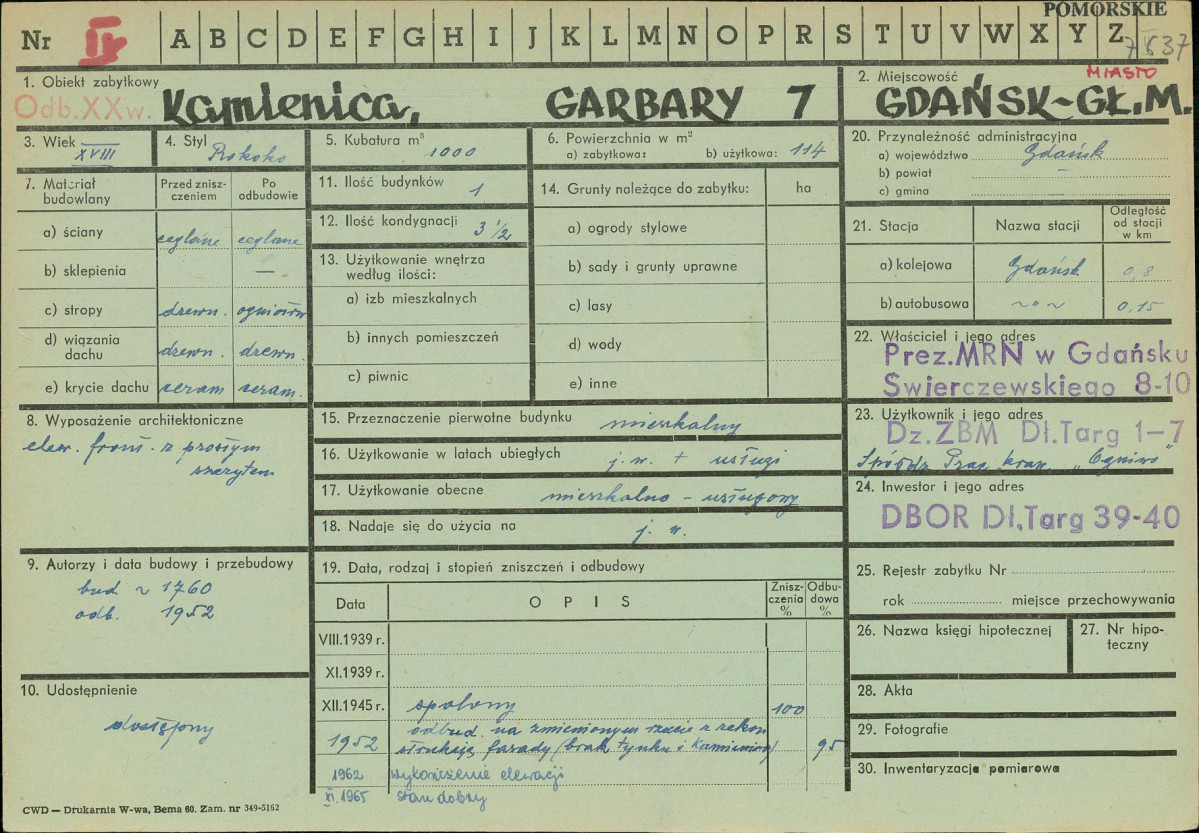 POMORSKIE
Nr IV A B C D E F G H I J K L M N O P R S T U V W X Y Z 7637
1. Obiekt zabytkowy
Odb.XXw. Kamienica, GARBARY 7
2. Miejscowość MIASTO
GDAŃSK-GŁ.M.
3. Wiek XVIII
4. Styl Rokoko
5. Kubatura m³ 1000
6. Powierzchnia w m²
a) zabytkowa: b) użytkowa: 114
7. Materiał budowlany
Przed zniszczeniem
Po odbudowie
a) ściany ceglane ceglane
b) sklepienia —
c) stropy drewn. ogniotrw
d) wiązania dachu drewn. drewn.
e) krycie dachu ceram ceram.
8. Wyposażenie architektoniczne
elew. front. z prostym
szczytem
9. Autorzy i data budowy i przebudowy
bud ~ 1760
odb. 1952
10. Udostępnienie
dostępny
11. Ilość budynków 1
12. Ilość kondygnacji 3 1/2
13. Użytkowanie wnętrza
według ilości:
a) izb mieszkalnych
b) innych pomieszczeń
c) piwnic
14. Grunty należące do zabytku: ha
a) ogrody stylowe
b) sady i grunty uprawne
c) lasy
d) wody
e) inne
15. Przeznaczenie pierwotne budynku mieszkalny
16. Użytkowanie w latach ubiegłych j. w. + usługi
17. Użytkowanie obecne mieszkalno - usługowy
18. Nadaje się do użycia na j. w.
19. Data, rodzaj i stopień zniszczeń i odbudowy
Data OPIS Zniszczenia % Odbudowa %
VIII.1939 r.
XI.1939 r.
XII.1945 r. spalony 100
1952 odbud. na zmienionym rzucie z rekon
strukcją fasady (brak tynku i kamieniarki) 95
1962 wykończenie elewacji
XI.1965 stan dobry
20. Przynależność administracyjna
a) województwo Gdańsk
b) powiat —
c) gmina
21. Stacja Nazwa stacji Odległość od stacji w km
a) kolejowa Gdańsk 0,8
b) autobusowa ~"~ 0,15
22. Właściciel i jego adres
Prez.MRN w Gdańsku
Swierczewskiego 8-10
23. Użytkownik i jego adres
Dz.ZBM Dł.Targ 1-7
Spółdz Prac. kraw. „Ogniwo"
24. Inwestor i jego adres
DBOR Dł.Targ 39-40
25. Rejestr zabytku Nr
rok miejsce przechowywania
26. Nazwa księgi hipotecznej
27. Nr hipoteczny
28. Akta
29. Fotografie
30. Inwentaryzacja pomiarowa
CWD — Drukarnia W-wa, Bema 60. Zam. nr 349-5162